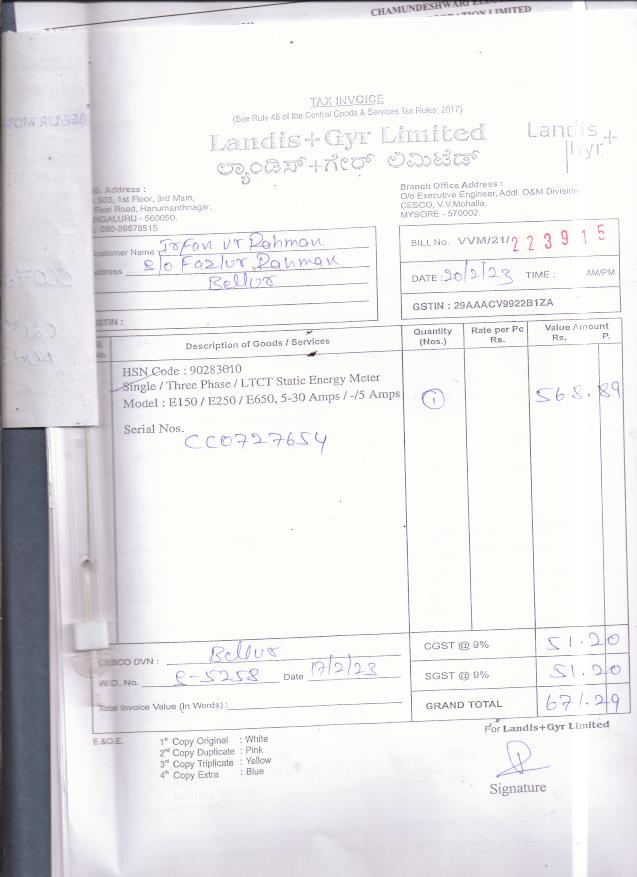 CHAMUNDESHWARI
LIMITED
TAX INVOICE
(See Rule 46 of the Central Goods & Services Tax Rules, 2017)
Landis+Gyr Limited
Landis
Gyr+
ಲ್ಯಾಂಡಿಸ್+ಗೇರ್ ಲಿಮಿಟೆಡ್
Address :
503, 1st Floor, 3rd Main,
Feet Road, Hanumanthnagar,
NGALURU - 560050.
080-26678515
Branch Office Address :
O/o Executive Engineer, Addl. O&M Division
CESCO, V.V.Mohalla,
MYSORE - 570002.
ustomer Name Irfan ur Rahman
ddress S/o Fazlur Rahman
Bellur
STIN :
BILL No. VVM/21/ 223915
DATE : 20/2/23 TIME : AM/PM
GSTIN : 29AAACV9922B1ZA
Description of Goods / Services
Quantity (Nos.)
Rate per Pc Rs.
Value Amount Rs. P.
HSN Code : 90283010
Single / Three Phase / LTCT Static Energy Meter
Model : E150 / E250 / E650, 5-30 Amps / -/5 Amps 1 568.89
Serial Nos.
CC0727654
CESCO DVN : Bellur
W.O. No. S-5258 Date 17/2/23
Total Invoice Value (In Words) :
CGST @ 9% 51.20
SGST @ 9% 51.20
GRAND TOTAL 671.29
E.&O.E.
1st Copy Original : White
2nd Copy Duplicate : Pink
3rd Copy Triplicate : Yellow
4th Copy Extra : Blue
For Landis+Gyr Limited
Signature